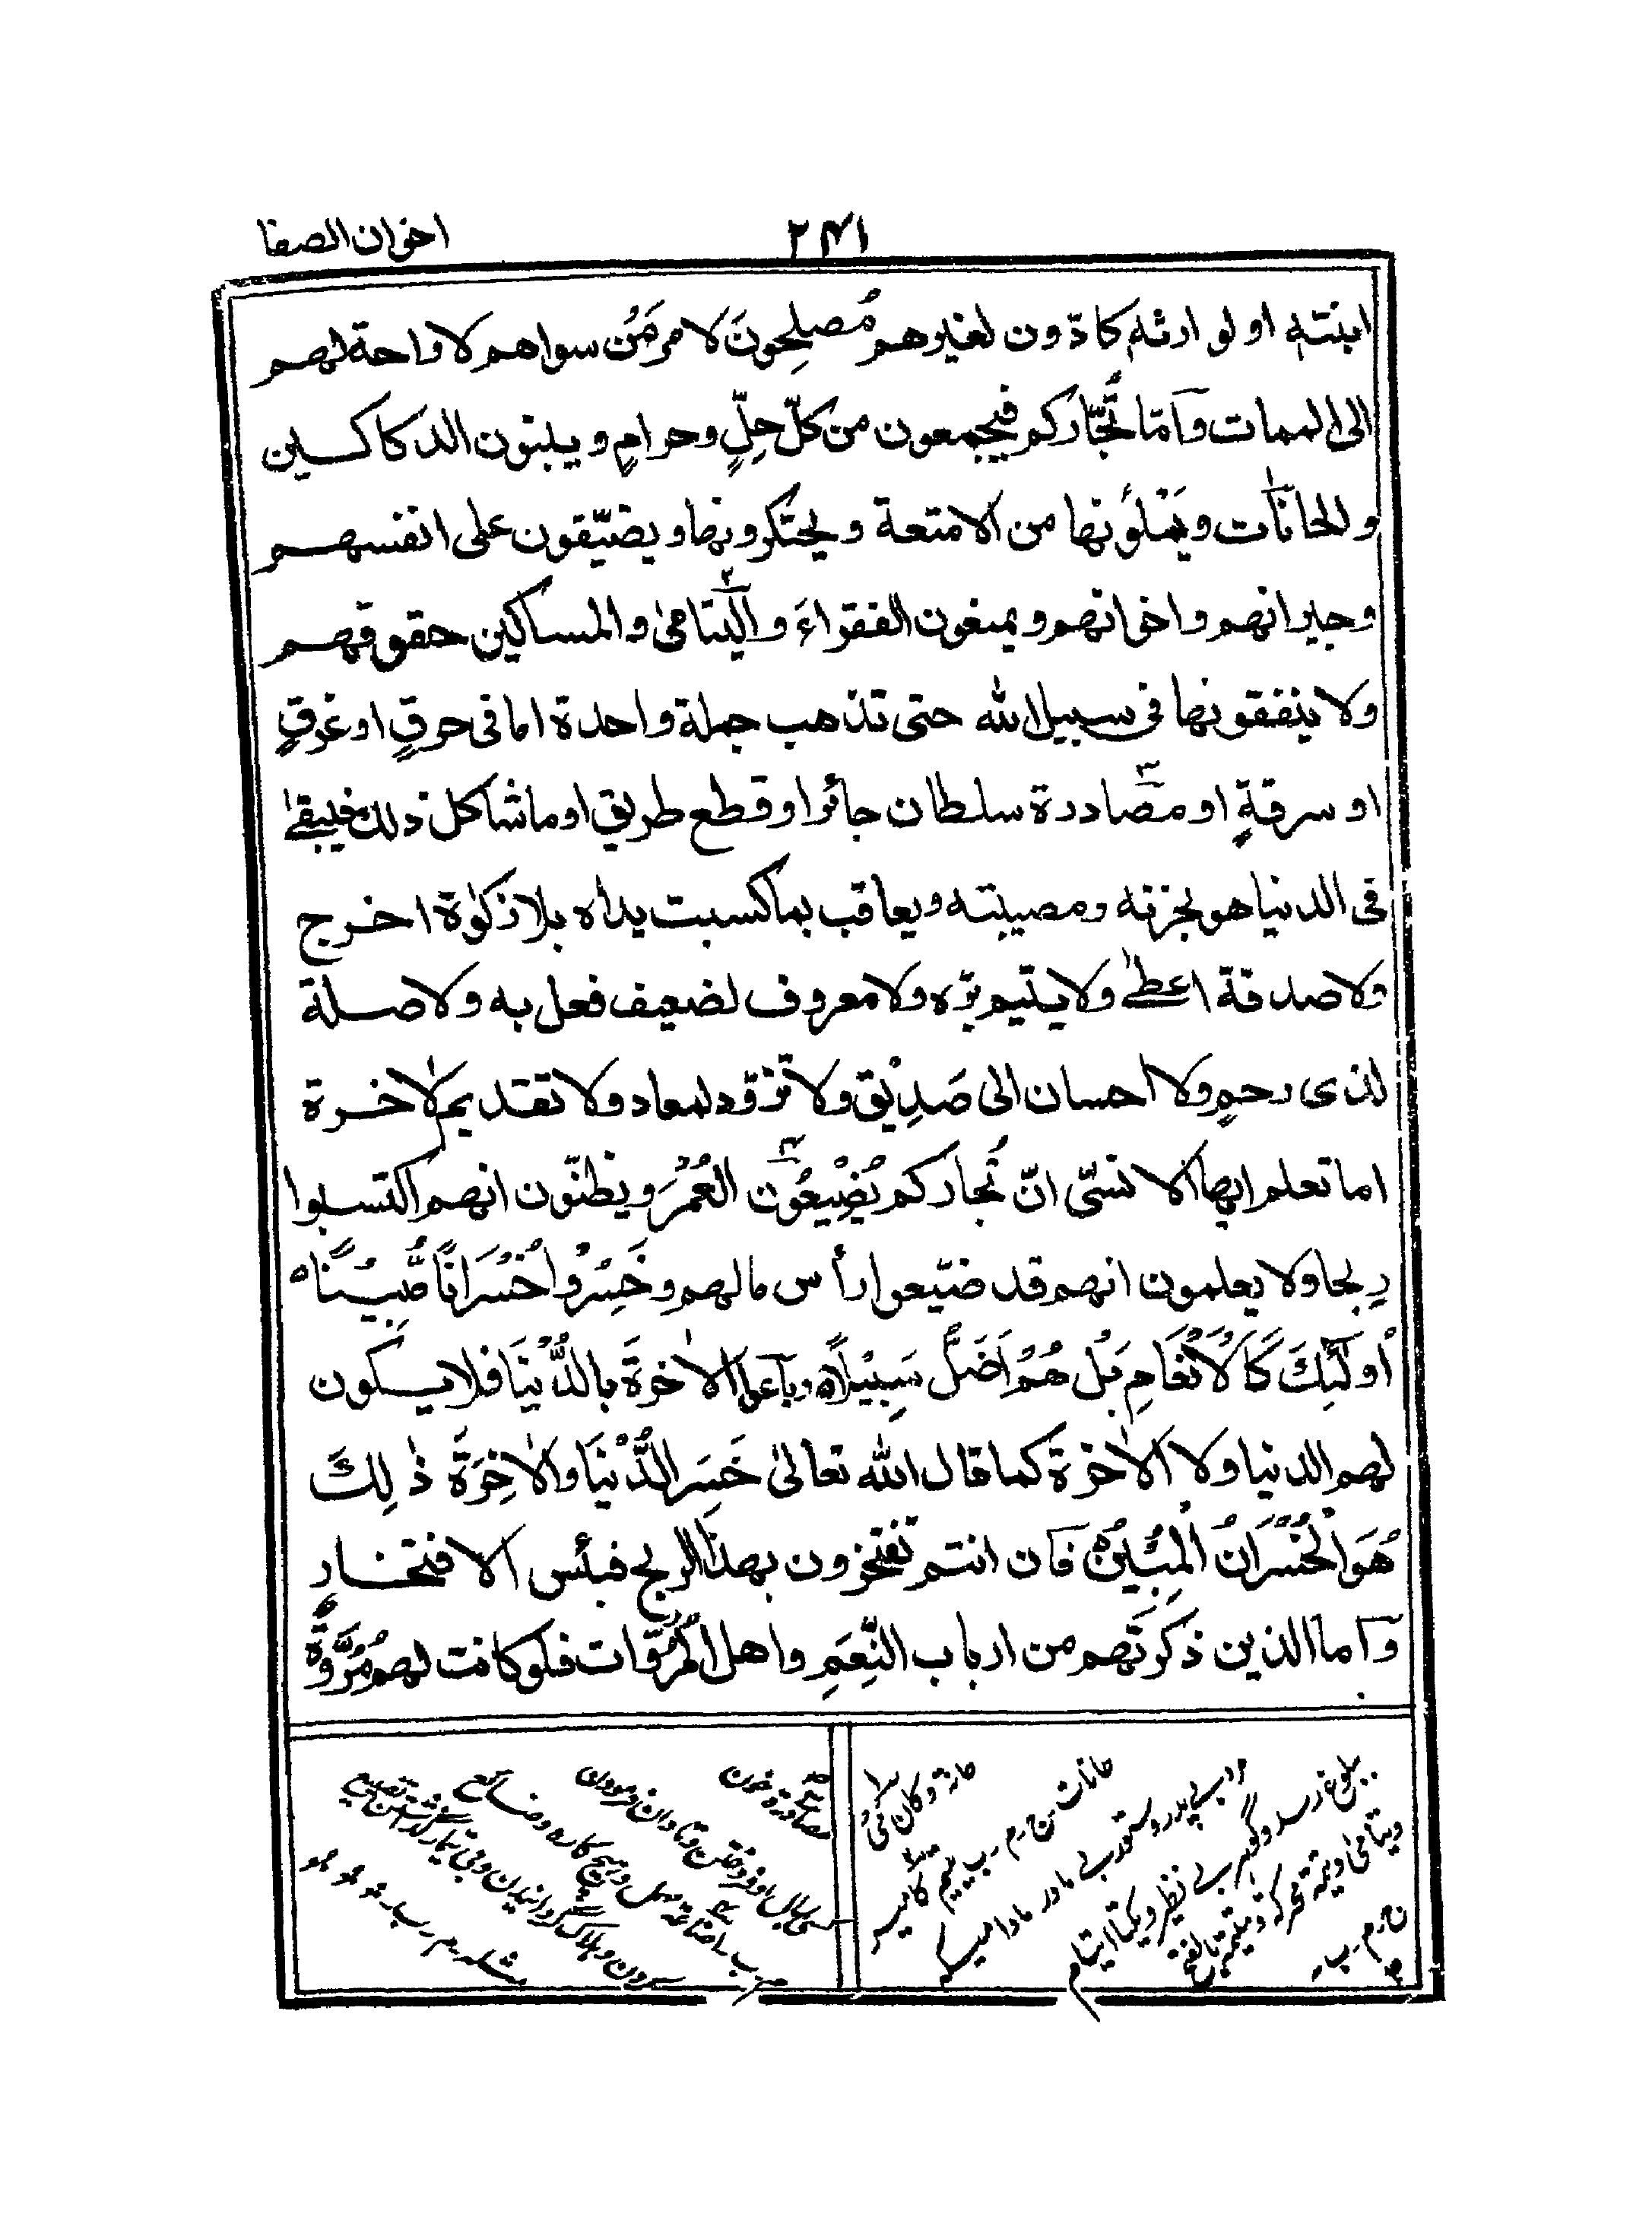 ٢٤١
اخوان الصفا
ابنته او لوارثه كادّون لغيرهم مُصلِحونَ لامر مَنْ سواهم لا راحة لهم
الى الممات وَاَمّا تُجّاركم فيجمعون من كلّ حِلٍّ وحرامٍ ويبنون الدكاكين
والخانات ويَمْلَؤنها من الامتعة ويحتكرونها ويضيّقون على انفسهم
وجيرانهم واخوانهم ويمنعون الفقراءَ واليتامىٰ والمساكين حقوقهم
ولا ينفقونها فى سبيل الله حتى تذهب جملة واحدة اما فى حرقٍ او غرقٍ
او سرقةٍ او مصادرة سلطان جائر او قطع طريق او ما شاكل ذلك فيبقىٰ
فى الدنيا هو بحزنه ومصيبته ويعاقب بما كسبت يداه بلا زكوٰة اخرج
ولا صدقة اعطىٰ ولا يتيم برّه ولا معروف لضعيف فعل به ولا صلة
لذى رحمٍ ولا احسان الى صَدِيْق ولا تزوّد لمعاد ولا تقديم لاٰخرة
اما تعلم ايها الانسىّ انّ تُجاركم يُضِيْعُوْن العُمْرَ ويظنّون انهم اكتسبوا
رِبحا ولا يعلمون انهم قد ضيّعوا رأس مالهم وخَسِرُوْا خُسْرَانًا مُّبِيْنًا ه
اُولٰٓئِكَ كَالْاَنْعَامِ بَلْ هُمْ اَضَلُّ سَبِيْلًا ه وباعوا الاٰخرةَ بالدُّنْيَا فلا يكون
لهم الدنيا ولا الاٰخرة كما قال الله تعالىٰ خَسِرَ الدُّنْيَا وَالاٰخِرَةَ ذٰلِكَ
هُوَ الْخُسْرَانُ الْمُبِيْنُ فان انتم تفتخرون بهذا الربح فبئس الافتخار
وَاما الذين ذكرتَهم من ارباب النِّعَمِ واهل المُرُوّات فلو كانت لهم مُرُوَّةٌ